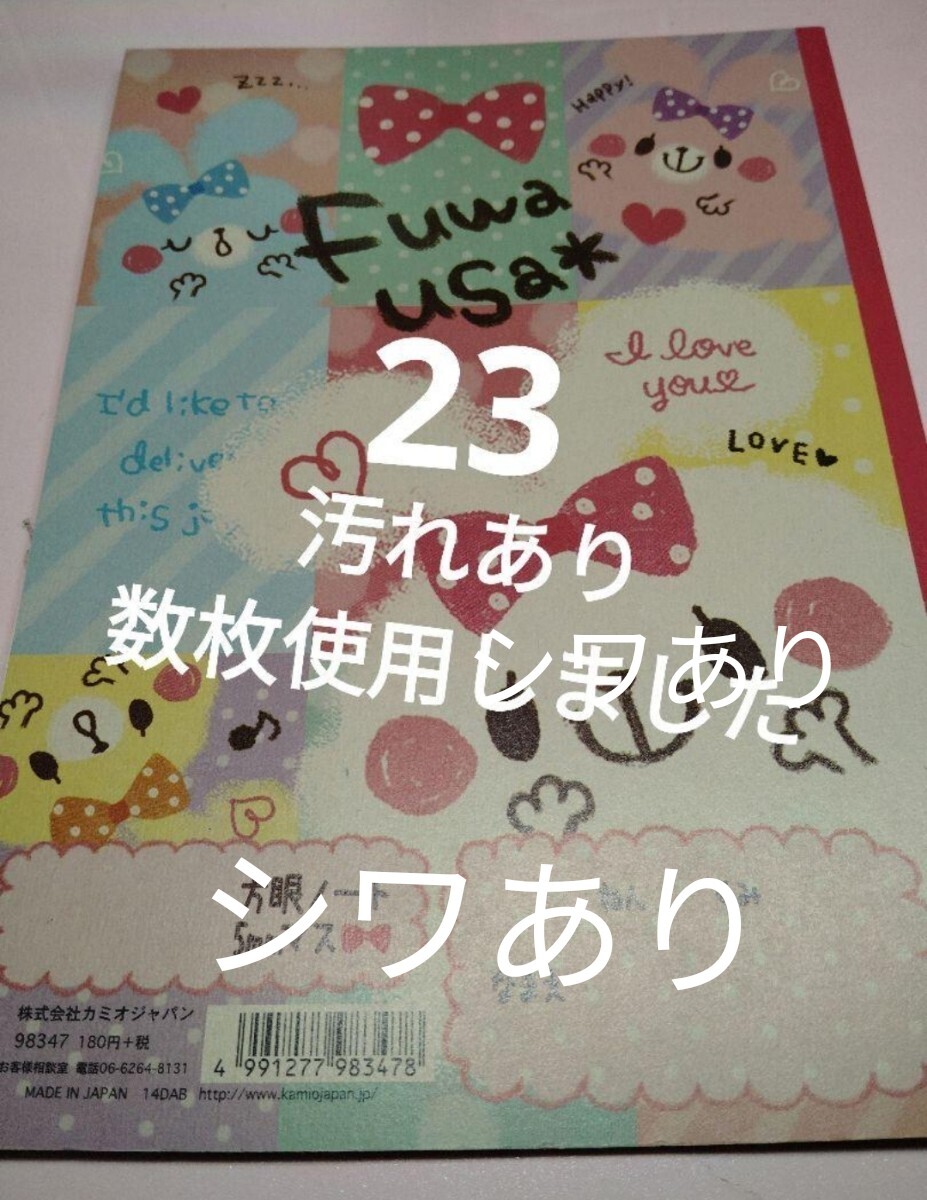 Zzz...
Happy!
Fuwa
usa*
23
I love
you
LOVE
I'd like to
this
汚れあり
数枚使用しました
シワあり
シワあり
方眼ノート
株式会社カミオジャパン
98347 180円+税
お客様相談室 電話06-6264-8131
MADE IN JAPAN 14DAB http://www.kamiojapan.jp/
4 991277 983478